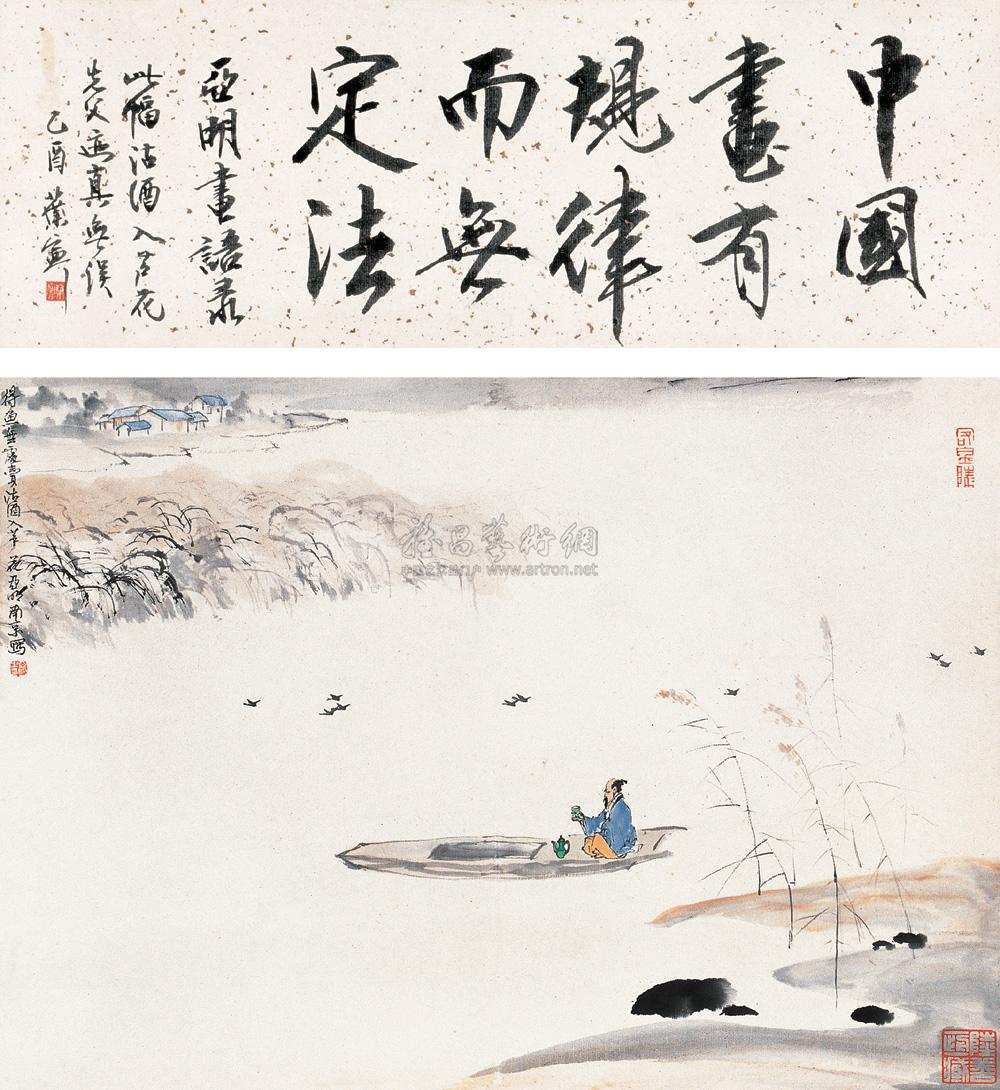 中國
畫有
規律
而無
定法
亞明畫語录
此幅沽酒入芦花
先父真無误
乙酉
得魚無處賣沽酒入芦花亞明南京寫
雅昌藝術網
www.artron.net